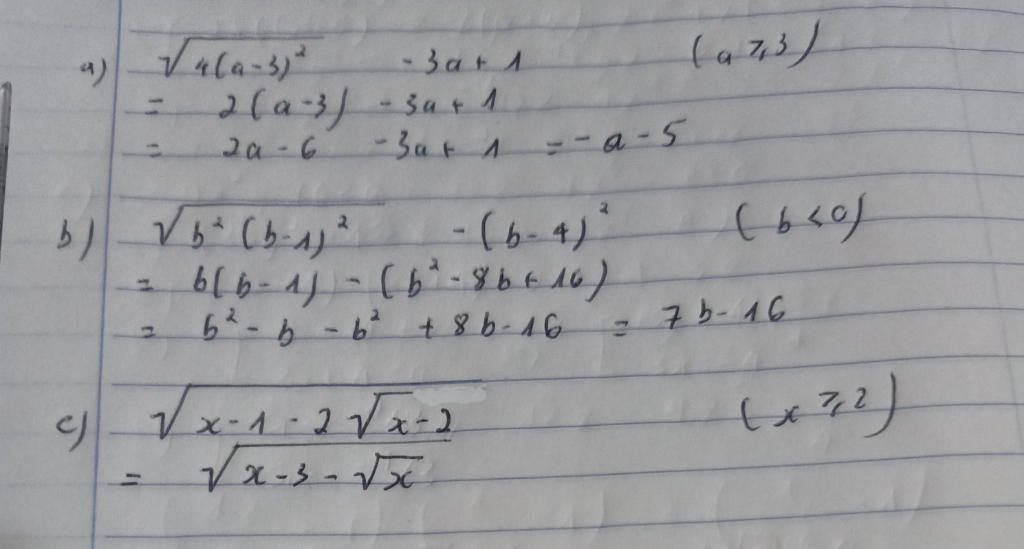 a) √(4(a-3)²) - 3a + 1 (a ⩾ 3)
= 2(a-3) - 3a + 1
= 2a - 6 - 3a + 1 = -a - 5
b) √(b²(b-1)²) - (b-4)² (b < 0)
= b(b-1) - (b² - 8b + 16)
= b² - b - b² + 8b - 16 = 7b - 16
c) √(x - 1 - 2√x - 2) (x ⩾ 2)
= √(x - 3 - √x)